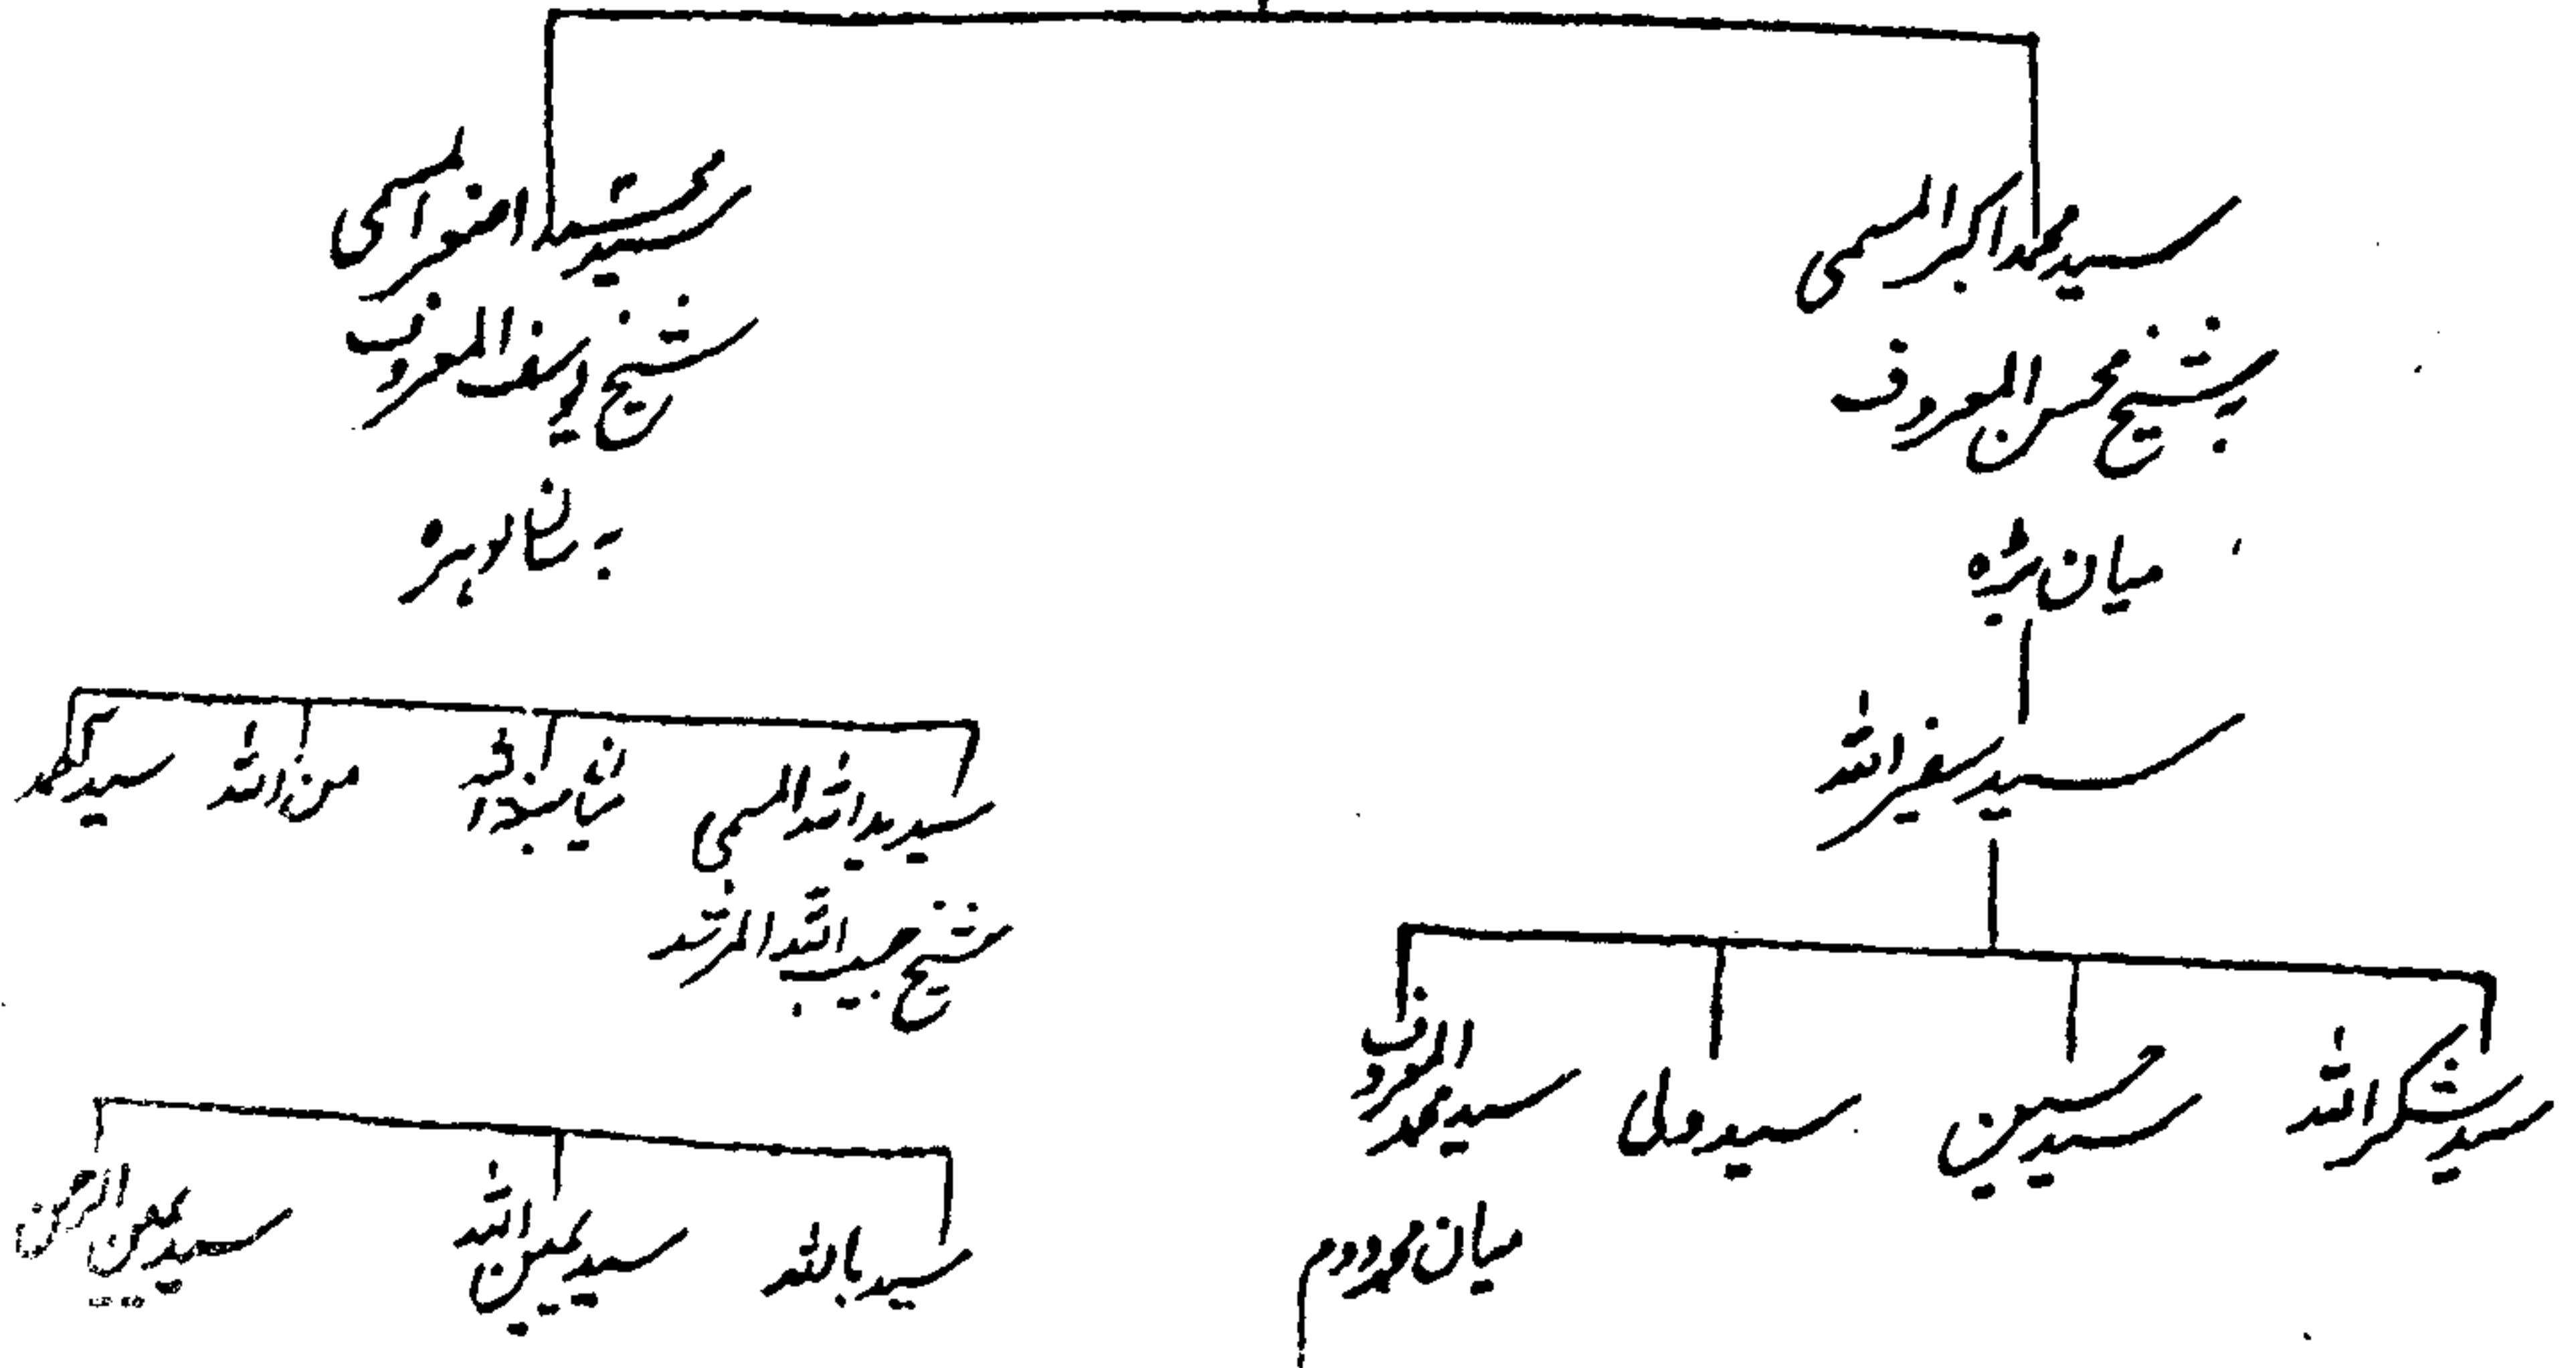 سید محمد اکبر المسمی
بہ شیخ محسن المعروف
میان بڑہ
سید سفیر اللہ
سید شکر اللہ
سید حسین
سید ولی
سید محمد المعروف
میان محمد دوم
سید محمد اصغر المسمی
شیخ یوسف المعروف
بہ
سید ید اللہ المسمی
شیخ حبیب اللہ المرشد
من اللہ
سید محمد
سید باللہ
سید یمین اللہ
سید یمین الرحمن